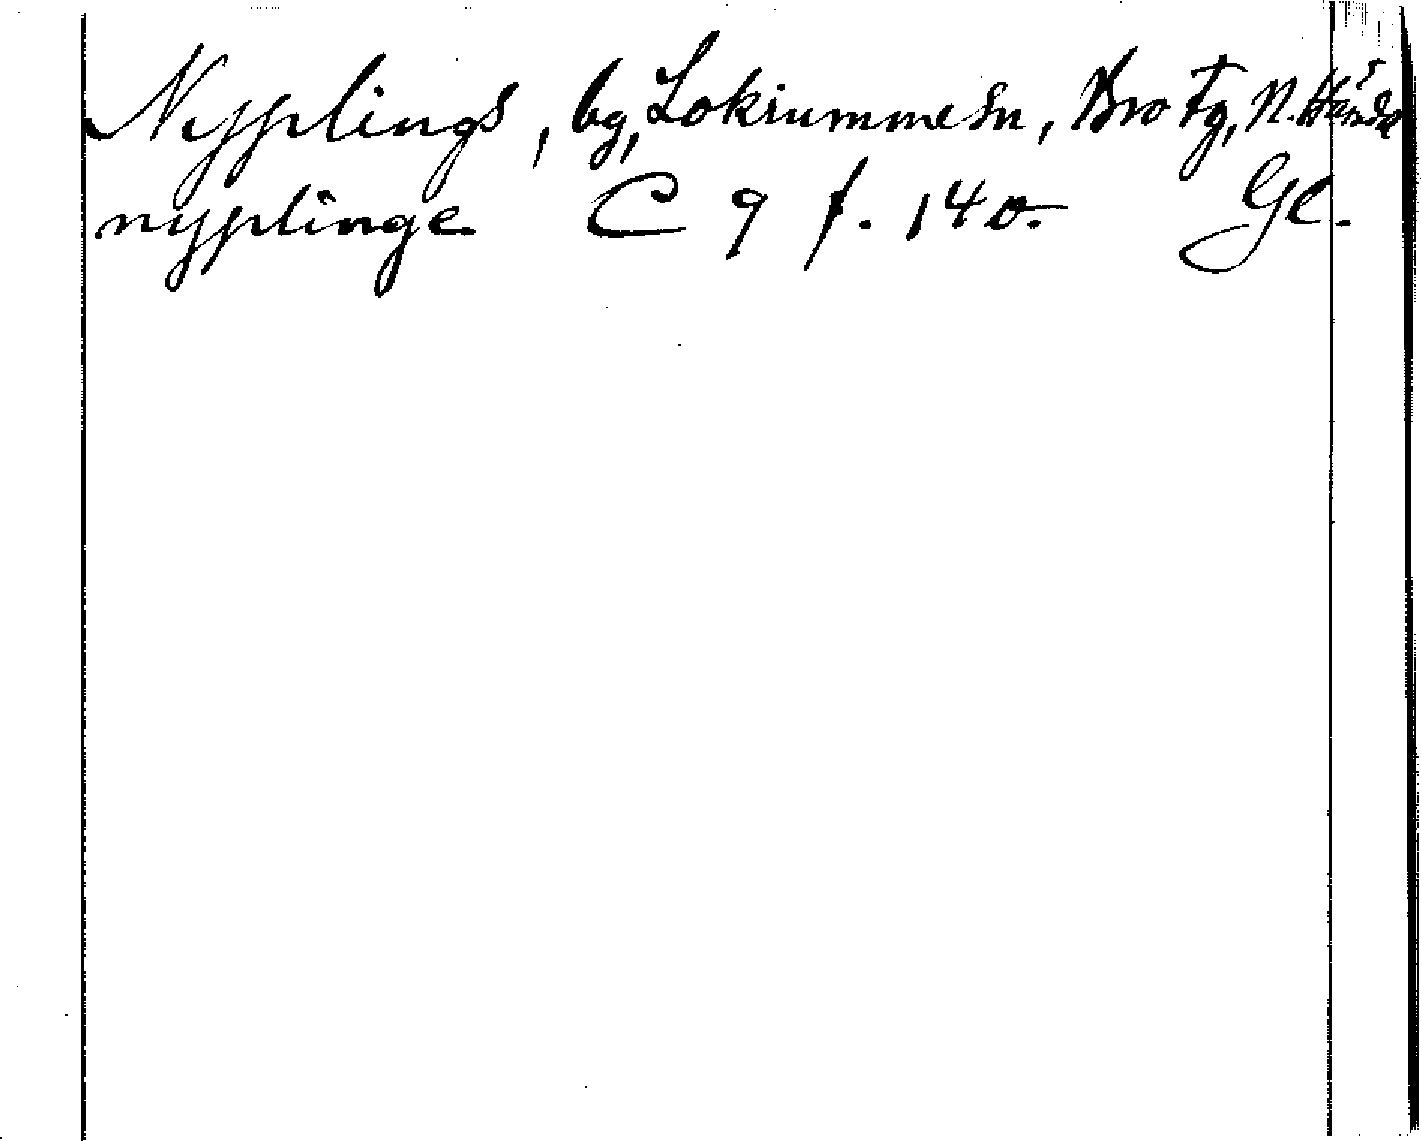 Nypplings, by, Lokrummesn, Bro tg, N. Härad
nypplinge C 9 f. 140. Gl.